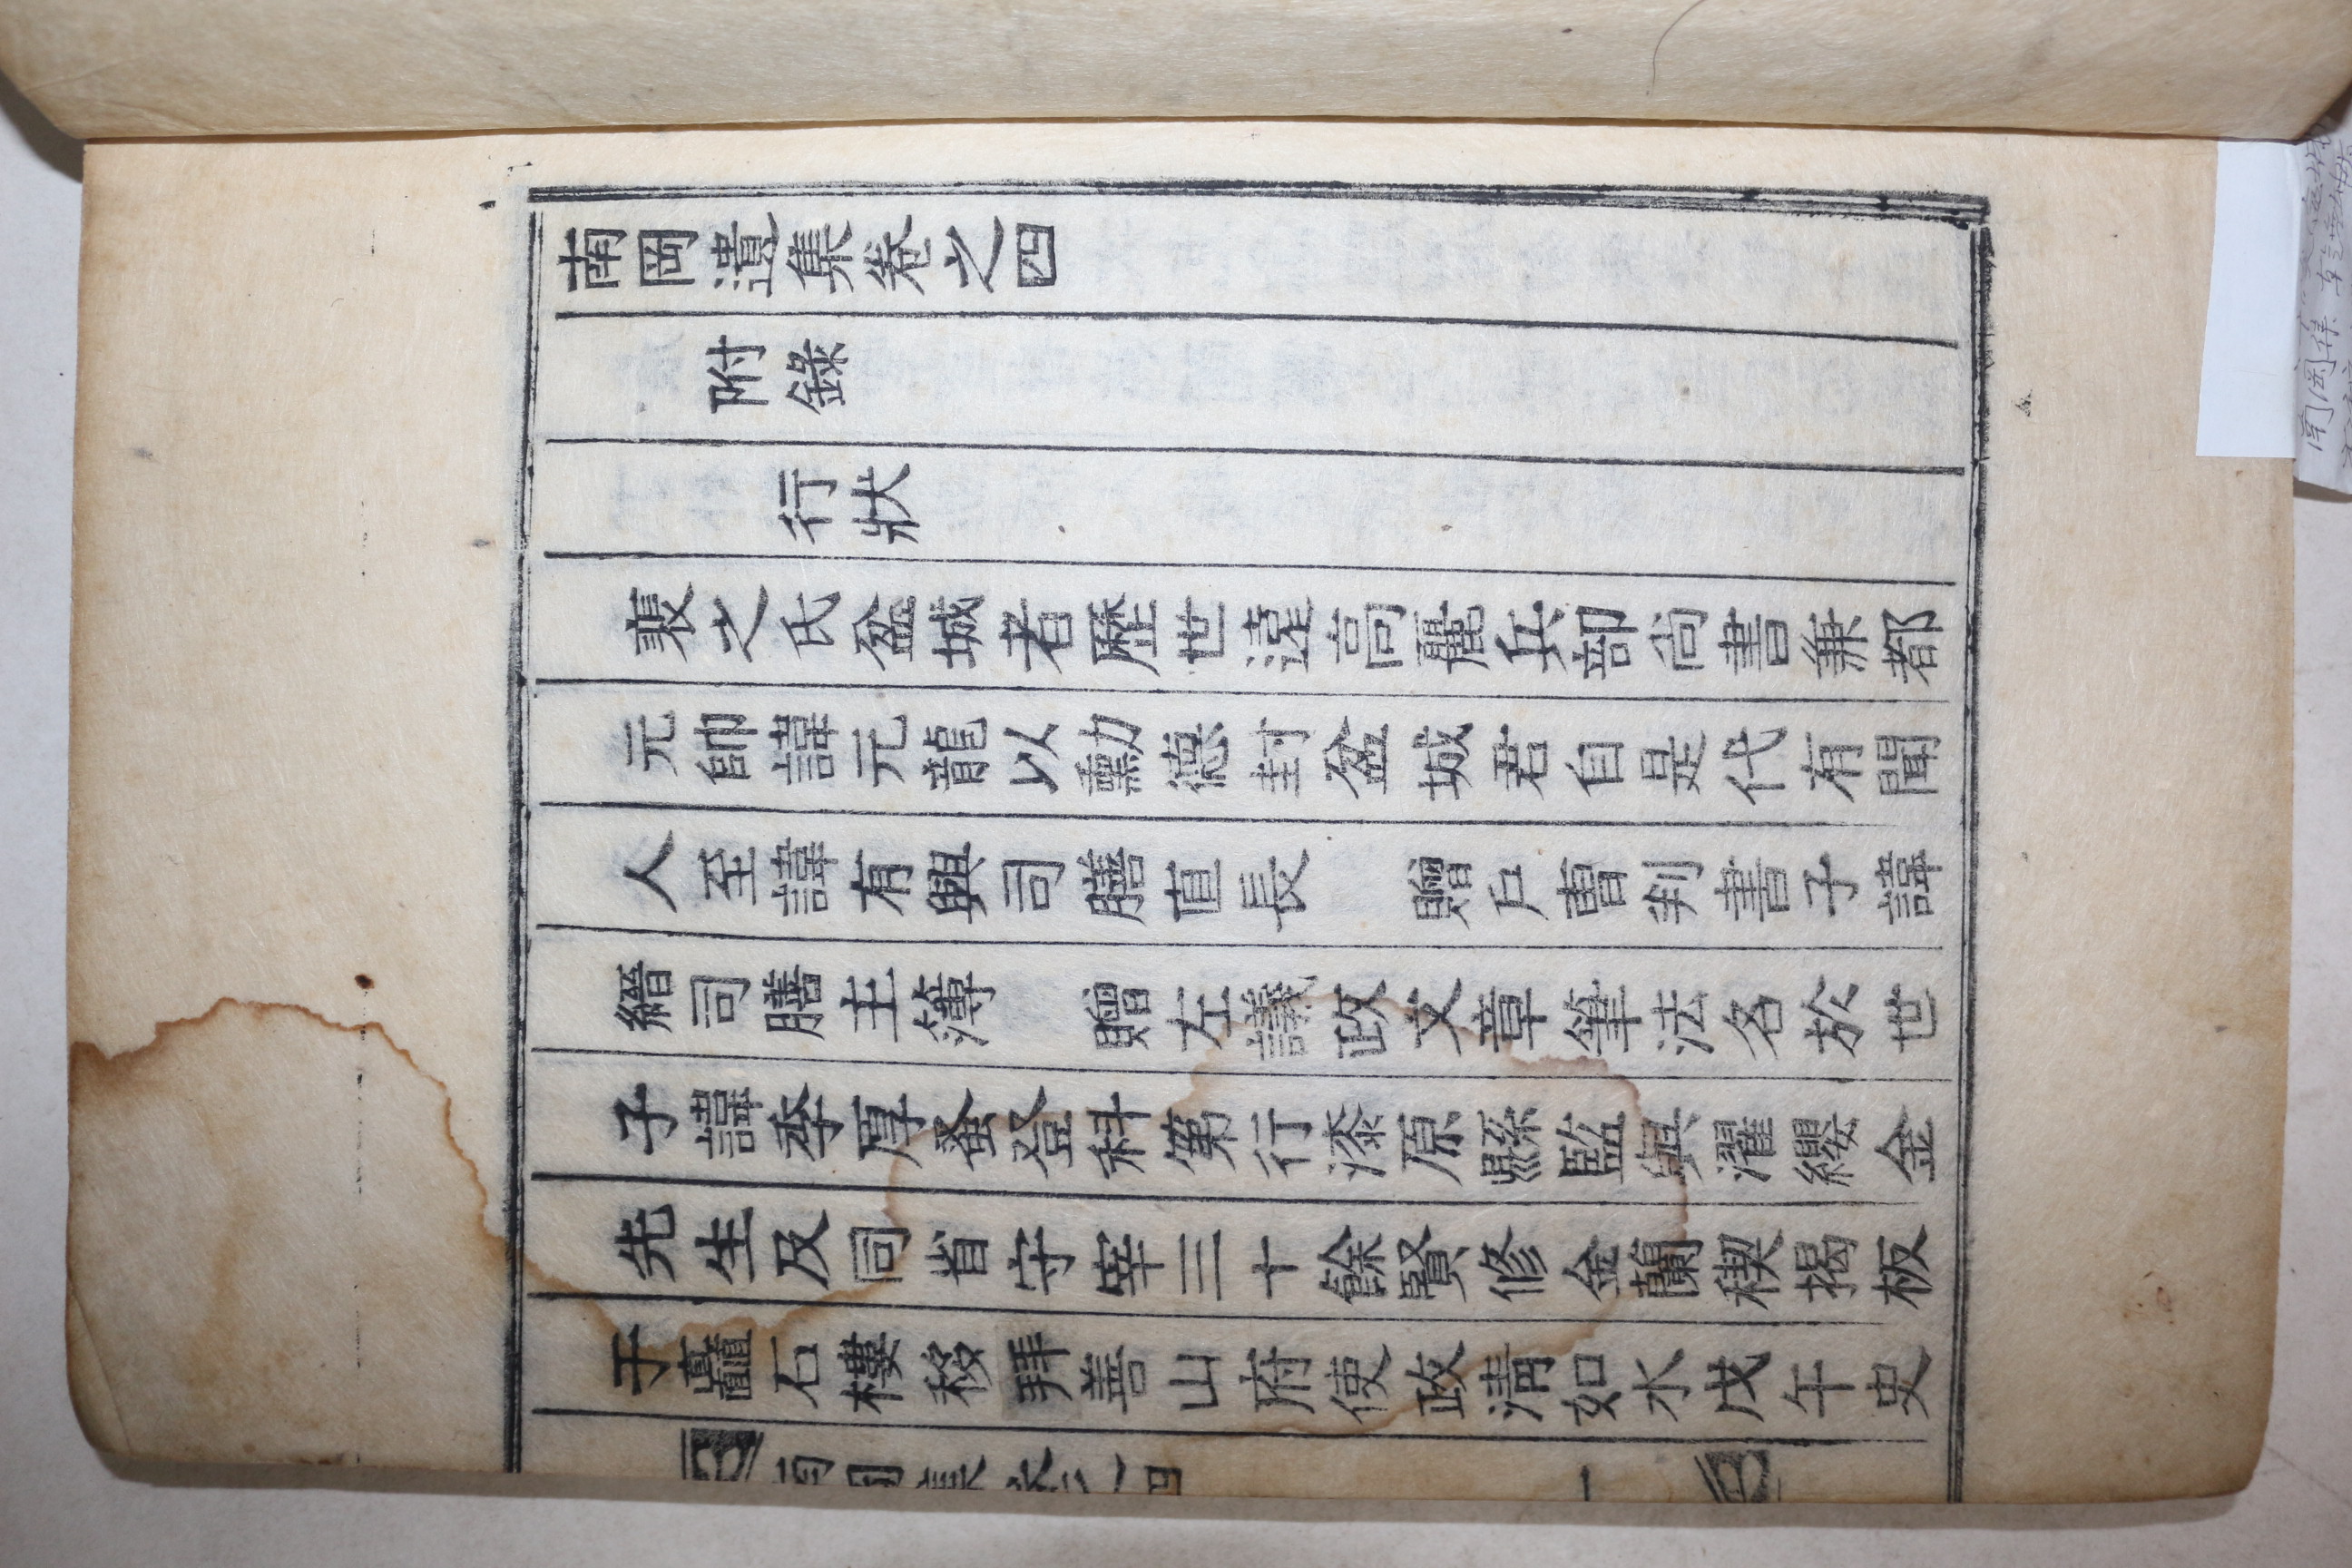 南岡遺集卷之四
附錄
行狀
裴之氏盆城者歷世遠高麗兵部尙書兼都
元帥諱元龍以勳德封盆城君自是代有聞
人至諱有興司膳直長 贈戶曹判書子諱
縉司膳主簿 贈左議政文章筆法名於世
子諱季厚蚤登科第行漆原縣監與濯纓金
先生及同省守宰三十餘賢修金蘭稧揭板
于矗石樓移拜善山府使政淸如水戊午史
南岡集卷之四 一
南岡集